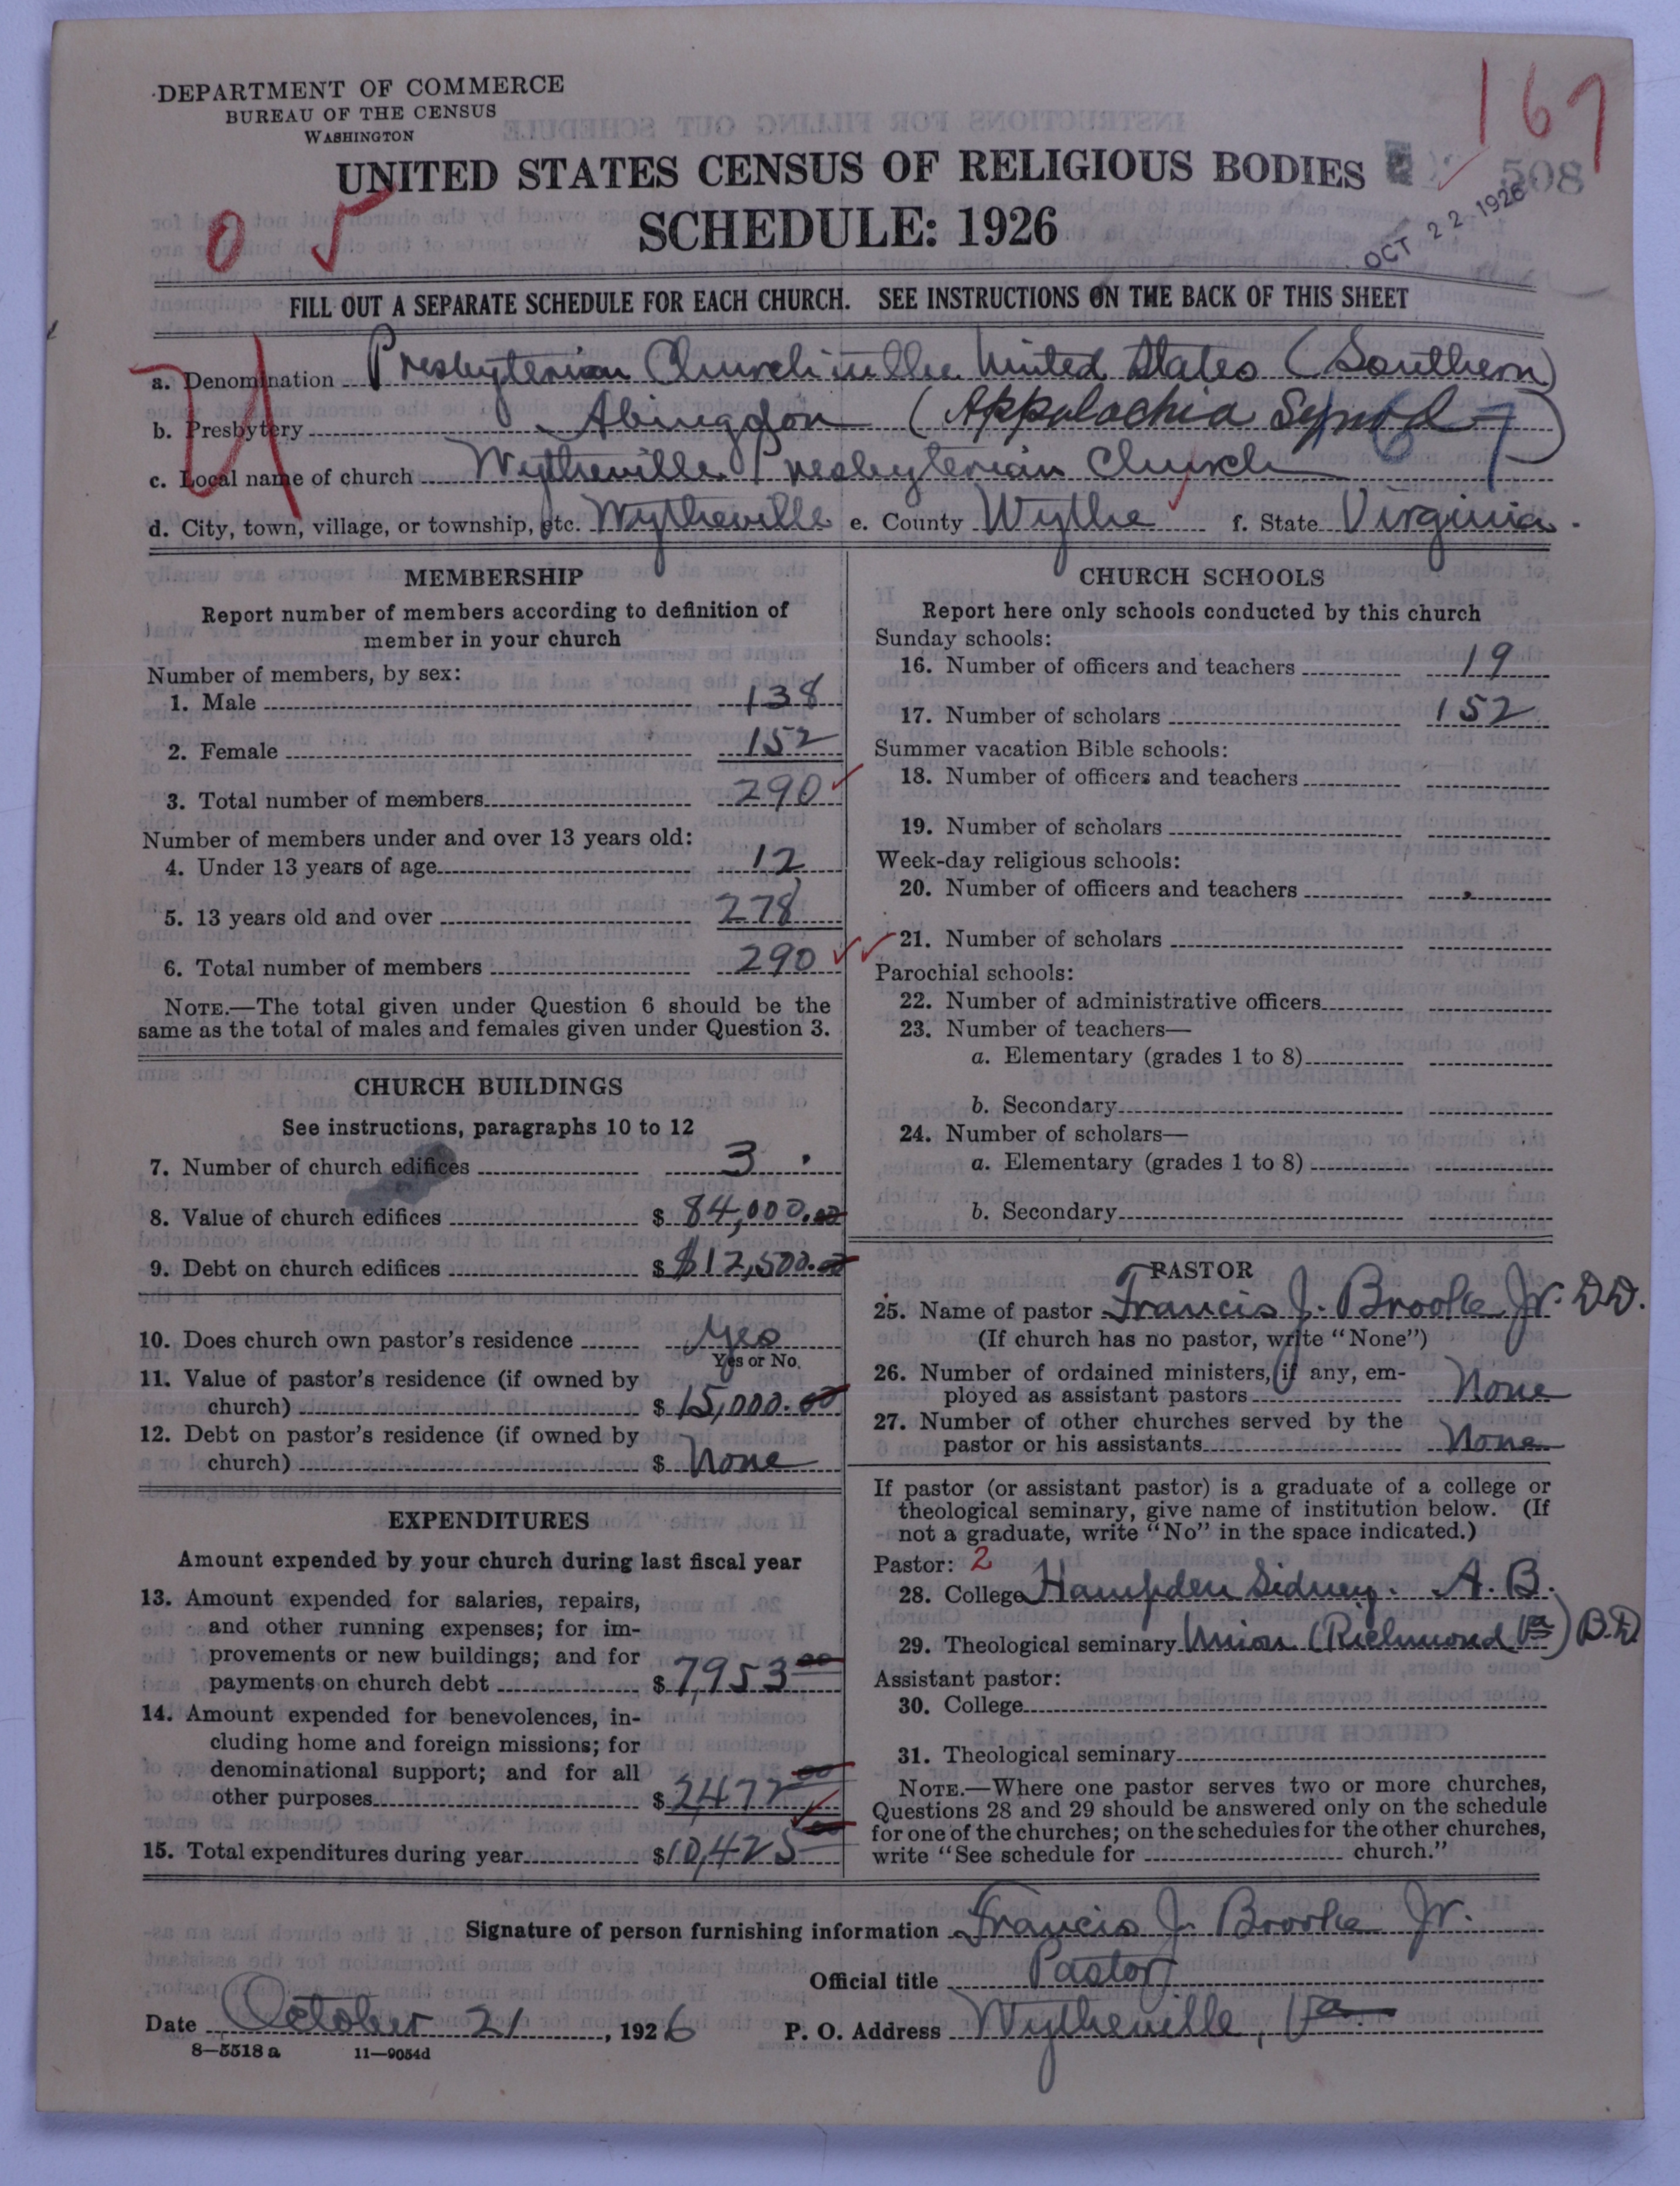 DEPARTMENT OF COMMERCE
BUREAU OF THE CENSUS
WASHINGTON
167
508
UNITED STATES CENSUS OF RELIGIOUS BODIES
SCHEDULE: 1926
OCT 22 1926
0 5
FILL OUT A SEPARATE SCHEDULE FOR EACH CHURCH. SEE INSTRUCTIONS ON THE BACK OF THIS SHEET
a. Denomination Presbyterian Church in the United States (Southern)
b. Presbytery Abingdon (Appalachia Synod) 167
c. Local name of church Wytheville Presbyterian Church
d. City, town, village, or township, etc. Wytheville e. County Wythe f. State Virginia.
MEMBERSHIP
Report number of members according to definition of
member in your church
Number of members, by sex:
1. Male 138
2. Female 152
3. Total number of members 290
Number of members under and over 13 years old:
4. Under 13 years of age 12
5. 13 years old and over 278
6. Total number of members 290
NOTE.—The total given under Question 6 should be the
same as the total of males and females given under Question 3.
CHURCH BUILDINGS
See instructions, paragraphs 10 to 12
7. Number of church edifices 3
8. Value of church edifices $ 84,000.00
9. Debt on church edifices $ $12,500.00
10. Does church own pastor's residence Yes
Yes or No
11. Value of pastor's residence (if owned by
church) $ 15,000.00
12. Debt on pastor's residence (if owned by
church) $ None
EXPENDITURES
Amount expended by your church during last fiscal year
13. Amount expended for salaries, repairs,
and other running expenses; for im-
provements or new buildings; and for
payments on church debt $ 7,953 00
14. Amount expended for benevolences, in-
cluding home and foreign missions; for
denominational support; and for all
other purposes $ 2472 00
15. Total expenditures during year $ 10,425 00
CHURCH SCHOOLS
Report here only schools conducted by this church
Sunday schools:
16. Number of officers and teachers 19
17. Number of scholars 152
Summer vacation Bible schools:
18. Number of officers and teachers
19. Number of scholars
Week-day religious schools:
20. Number of officers and teachers
21. Number of scholars
Parochial schools:
22. Number of administrative officers
23. Number of teachers—
a. Elementary (grades 1 to 8)
b. Secondary
24. Number of scholars—
a. Elementary (grades 1 to 8)
b. Secondary
PASTOR
25. Name of pastor Francis J. Brooke Jr. D.D.
(If church has no pastor, write "None")
26. Number of ordained ministers, if any, em-
ployed as assistant pastors None
27. Number of other churches served by the
pastor or his assistants None
If pastor (or assistant pastor) is a graduate of a college or
theological seminary, give name of institution below. (If
not a graduate, write "No" in the space indicated.)
Pastor: 2
28. College Hampden Sidney. A.B.
29. Theological seminary Union (Richmond Va) B.D
Assistant pastor:
30. College
31. Theological seminary
NOTE.—Where one pastor serves two or more churches,
Questions 28 and 29 should be answered only on the schedule
for one of the churches; on the schedules for the other churches,
write "See schedule for church."
Signature of person furnishing information Francis J. Brooke Jr.
Official title Pastor
Date October 21, 1926 P. O. Address Wytheville, Va.
8—5518 a 11—9054d